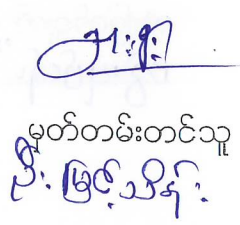 မှတ်တမ်းတင်သူ
ဦးမြင့်သိန်း